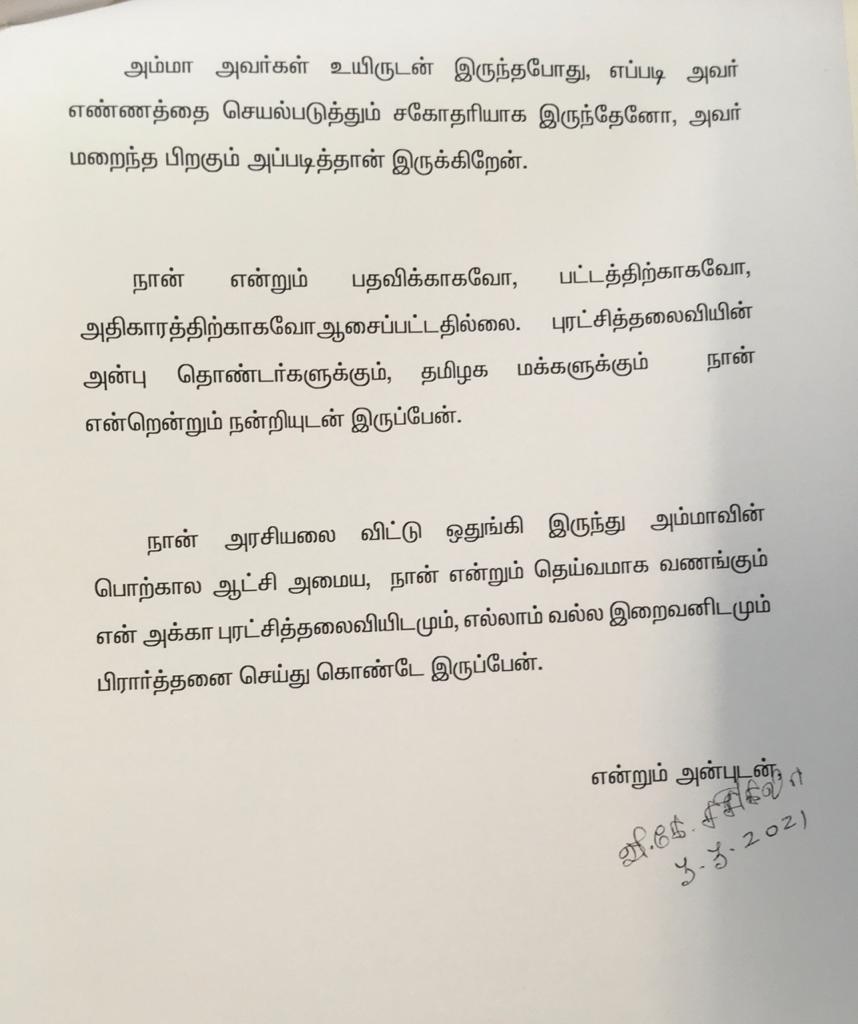 அம்மா அவர்கள் உயிருடன் இருந்தபோது, எப்படி அவர்
எண்ணத்தை செயல்படுத்தும் சகோதரியாக இருந்தேனோ, அவர்
மறைந்த பிறகும் அப்படித்தான் இருக்கிறேன்.
நான் என்றும் பதவிக்காகவோ, பட்டத்திற்காகவோ,
அதிகாரத்திற்காகவோஆசைப்பட்டதில்லை. புரட்சித்தலைவியின்
அன்பு தொண்டர்களுக்கும், தமிழக மக்களுக்கும் நான்
என்றென்றும் நன்றியுடன் இருப்பேன்.
நான் அரசியலை விட்டு ஒதுங்கி இருந்து அம்மாவின்
பொற்கால ஆட்சி அமைய, நான் என்றும் தெய்வமாக வணங்கும்
என் அக்கா புரட்சித்தலைவியிடமும், எல்லாம் வல்ல இறைவனிடமும்
பிரார்த்தனை செய்து கொண்டே இருப்பேன்.
என்றும் அன்புடன்,
வி.கே. சசிகலா
3-3-2021